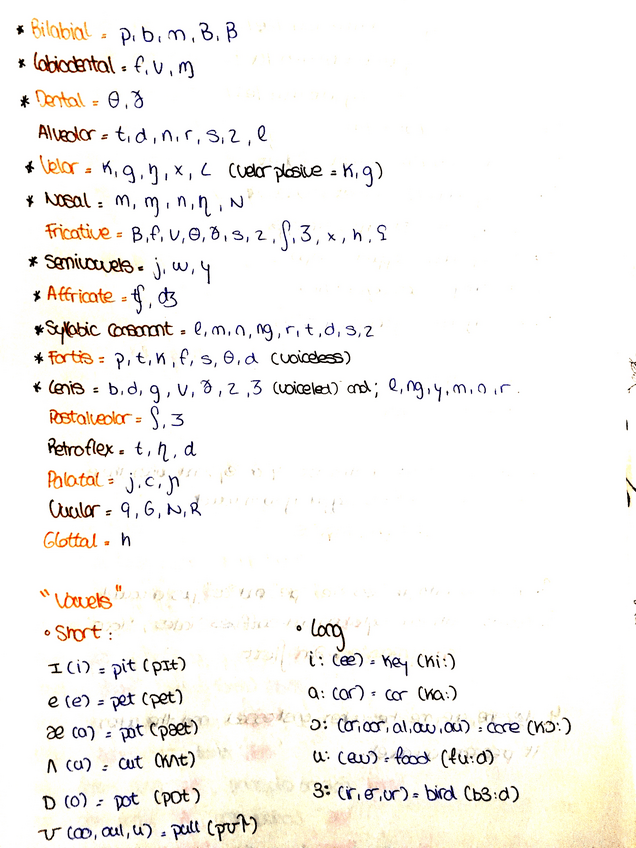 * Bilabial = p, b, m, B, β
* Labiodental = f, v, ɱ
* Dental = θ, ð
Alveolar = t, d, n, r, s, z, l
* Velar = k, g, ŋ, x, L (velar plosive = k, g)
* Nasal = m, ɱ, n, ŋ, N
Fricative = B, f, v, θ, ð, s, z, ʃ, ʒ, x, h, ʕ
* Semivowels = j, w, y
* Affricate = tʃ, dʒ
* Syllabic Consonant = l, m, n, ng, r, t, d, s, z
* Fortis = p, t, k, f, s, θ, d (voiceless)
* Lenis = b, d, g, v, ð, z, ʒ (voiceled) and; l, ng, y, m, n, r.
Postalveolar = ʃ, ʒ
Retroflex = t, η, d
Palatal = j, c, ɲ
Uvular = q, G, N, R
Glottal = h
"Vowels"
• Short :
I (i) = pit (pIt)
e (e) = pet (pet)
æ (a) = pat (pæt)
ʌ (u) = cut (kʌt)
ɒ (o) = pot (pɒt)
ʊ (oo, oul, u) = pull (pʊl)
• Long
i: (ee) = key (ki:)
a: (ar) = car (ka:)
ɔ: (or, oor, al, aw, au) = core (kɔ:)
u: (ew) = food (fu:d)
ɜ: (ir, er, ur) = bird (bɜ:d)